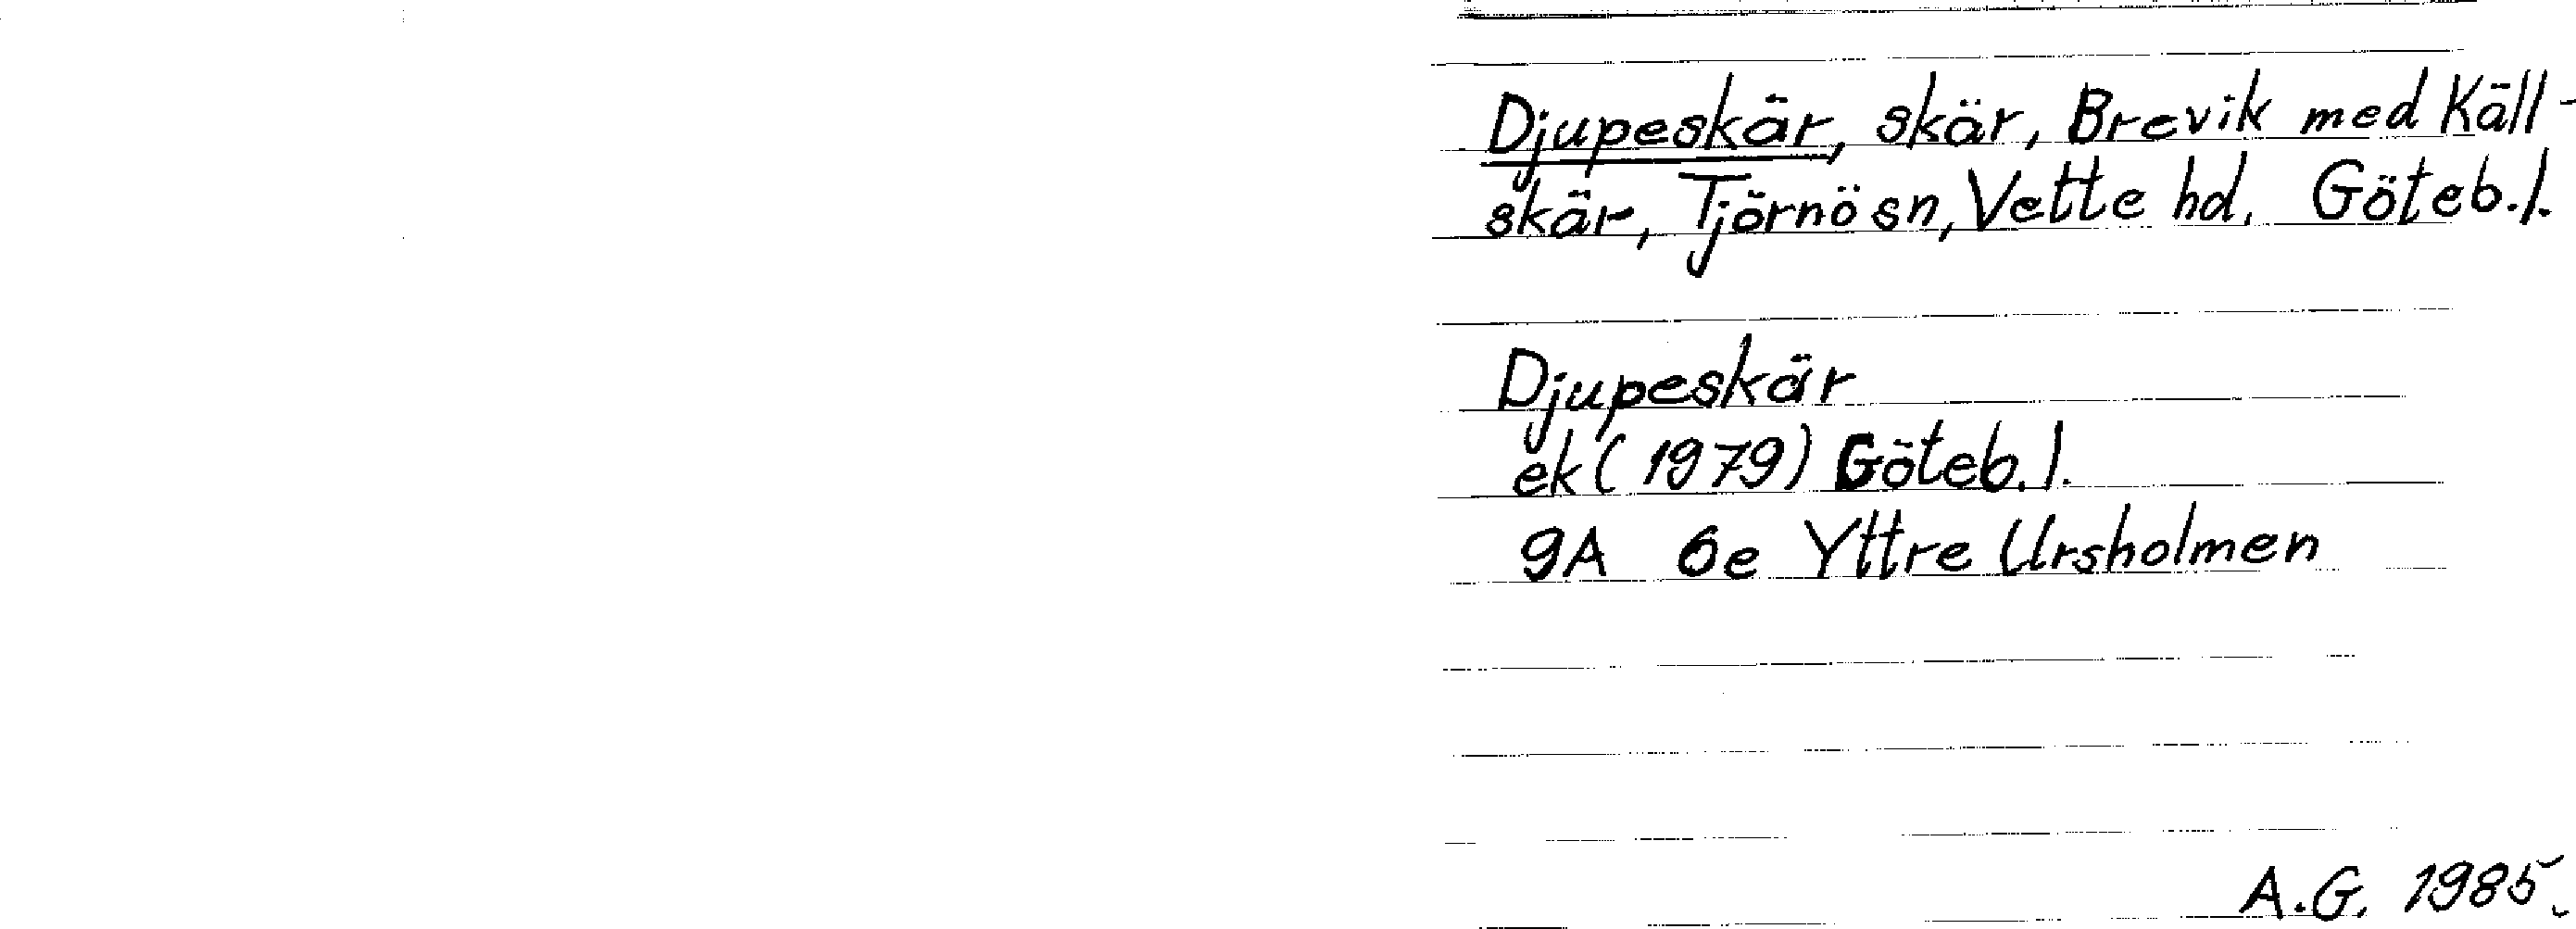 Djupeskär, skär, Brevik med Käll-
skär, Tjörnö sn, Vette hd, Göteb.l.
Djupeskär
ek (1979) Göteb.l.
9A 6e Yttre Ursholmen
A.G. 1985.